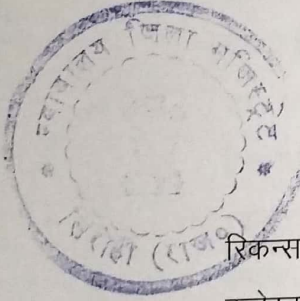 न्यायालय जिला मजिस्ट्रेट
सिरोही (राज०)
रिकन्स